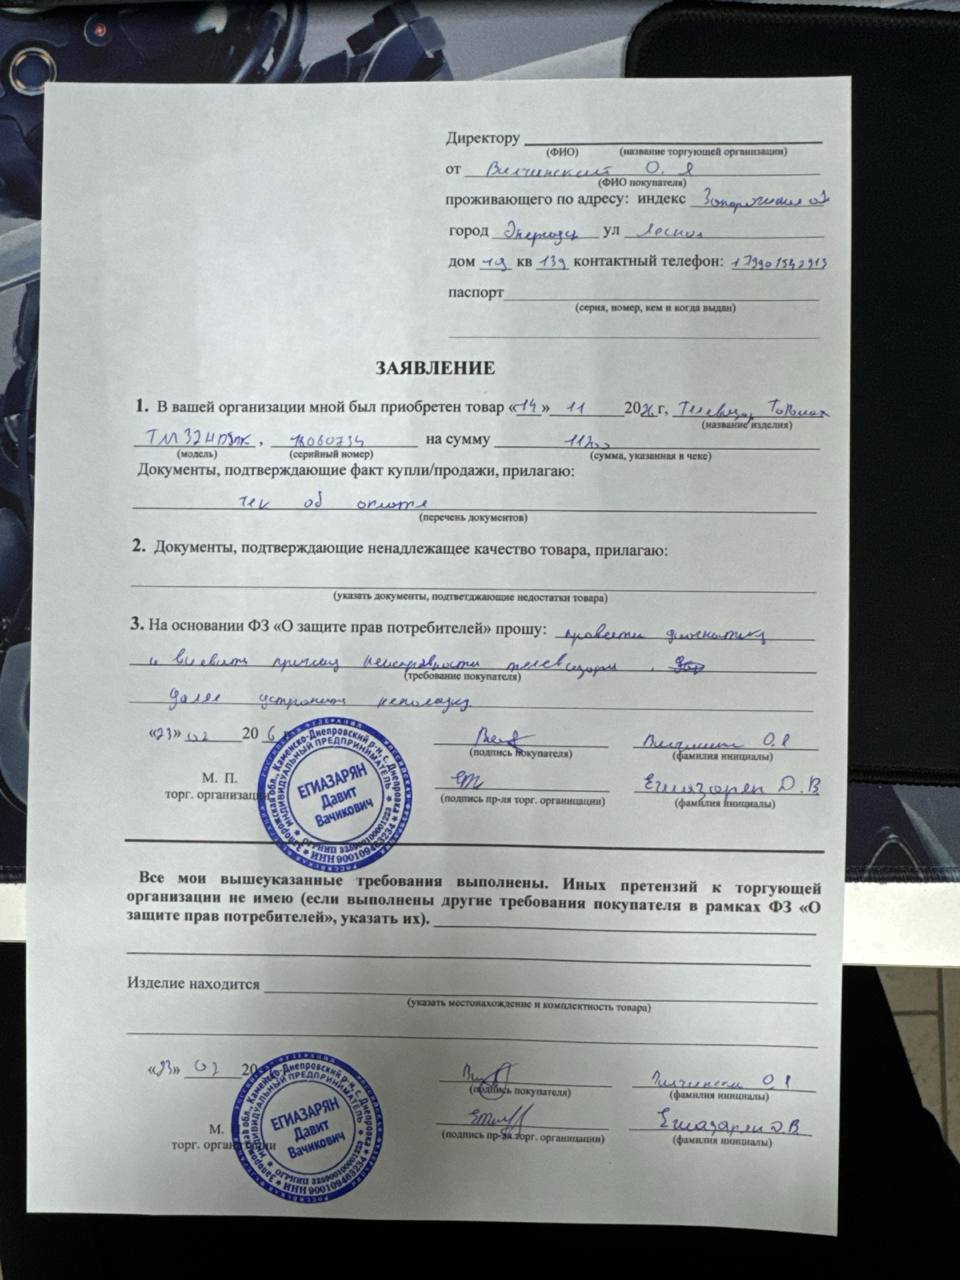 Директору
(ФИО) (название торгующей организации)
от Вилчинский О. Я
(ФИО покупателя)
проживающего по адресу: индекс
город Энергодар ул Лесная
дом 19 кв 139 контактный телефон: +79901542913
паспорт
(серия, номер, кем и когда выдан)
ЗАЯВЛЕНИЕ
1. В вашей организации мной был приобретен товар «14» 11 20 г, Телевизор
(название изделия)
, на сумму
(модель) (серийный номер) (сумма, указанная в чеке)
Документы, подтверждающие факт купли/продажи, прилагаю:
чек об оплате
(перечень документов)
2. Документы, подтверждающие ненадлежащее качество товара, прилагаю:
(указать документы, подтветджающие недостатки товара)
3. На основании ФЗ «О защите прав потребителей» прошу: провести диагностику
и выевить причину неисправности телевизора .
(требование покупателя)
Далее устронить неполадку.
«23» 02 20 6
(подпись покупателя) (фамилия инициалы)
М. П. Егиазарян Д. В
торг. организации (подпись пр-ля торг. органицации) (фамилия инициалы)
Запорожская обл., Каменско-Днепровский р-н, с. Днепровка
ИНДИВИДУАЛЬНЫЙ ПРЕДПРИНИМАТЕЛЬ
ЕГИАЗАРЯН
Давит
Вачикович
Все мои вышеуказанные требования выполнены. Иных претензий к торгующей
организации не имею (если выполнены другие требования покупателя в рамках ФЗ «О
защите прав потребителей», указать их).
Изделие находится
(указать местонахождение и комплектность товара)
«23» 02 20
(подпись покупателя) (фамилия инициалы)
М. Егиазарян Д.В
торг. организации (подпись пр-ля торг. органицации) (фамилия инициалы)
Запорожская обл., Каменско-Днепровский р-н, с. Днепровка
ИНДИВИДУАЛЬНЫЙ ПРЕДПРИНИМАТЕЛЬ
ЕГИАЗАРЯН
Давит
Вачикович